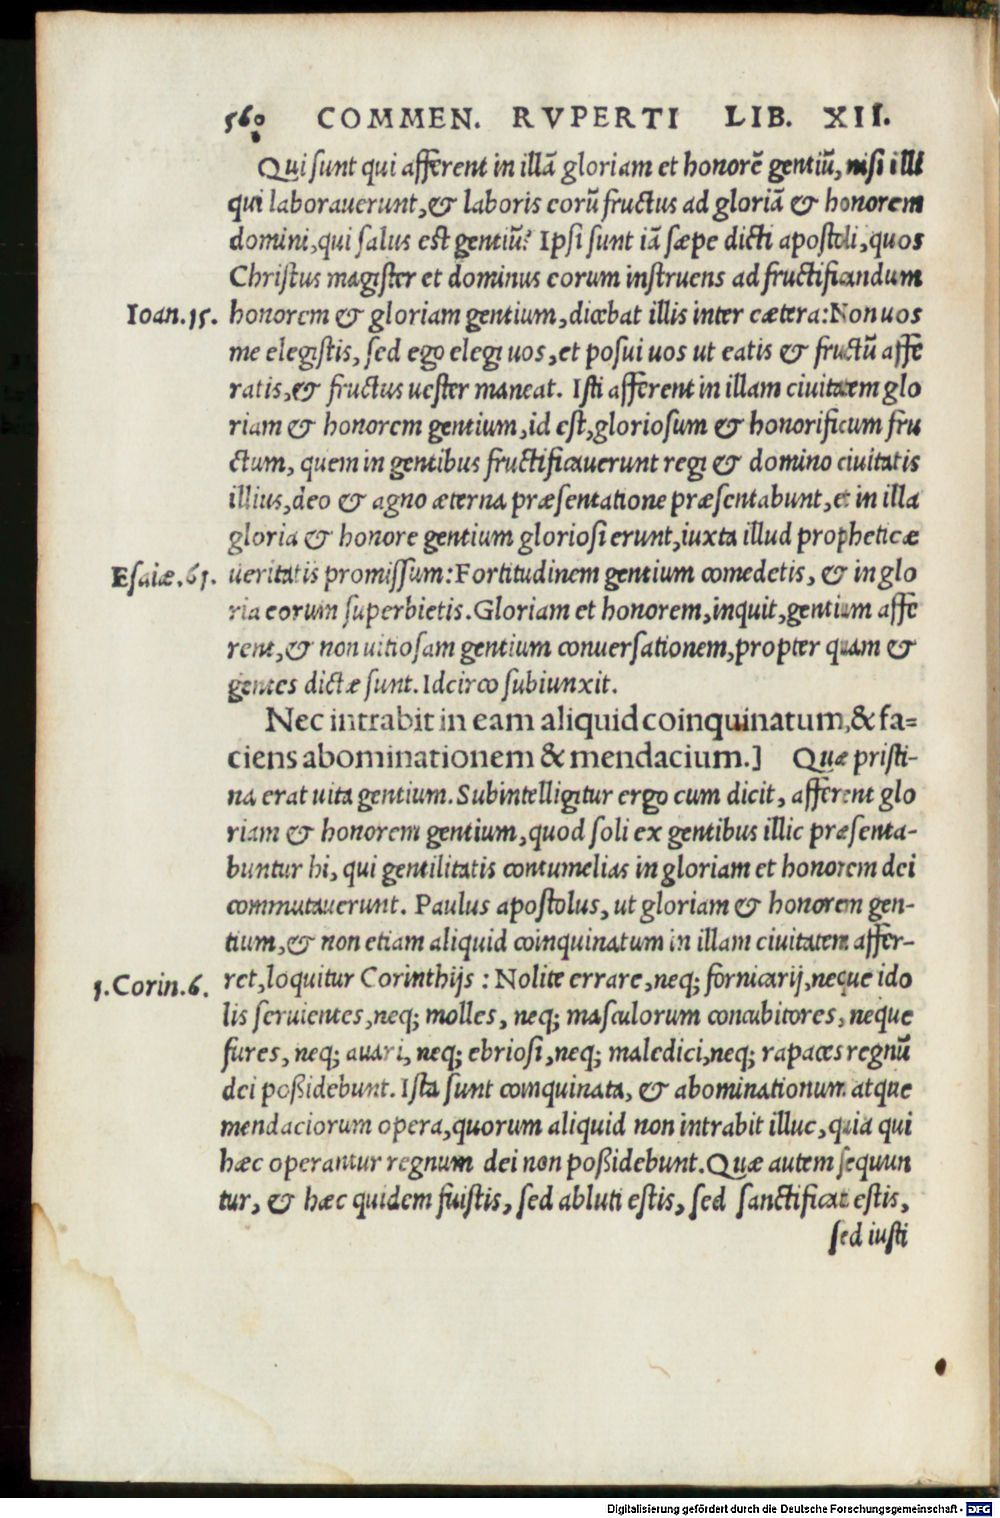 560 COMMEN. RVPERTI LIB. XII.
Qui sunt qui afferent in illā gloriam et honorē gentiū, nisi illi
qui laborauerunt, & laboris eorū fructus ad gloriā & honorem
domini, qui salus est gentiū? Ipsi sunt iā sæpe dicti apostoli, quos
Christus magister et dominus eorum instruens ad fructificandum
Ioan.15. honorem & gloriam gentium, dicebat illis inter cætera: Non uos
me elegistis, sed ego elegi uos, et posui uos ut eatis & fructū affe
ratis, & fructus uester maneat. Isti afferent in illam ciuitatem glo
riam & honorem gentium, id est, gloriosum & honorificum fru
ctum, quem in gentibus fructificauerunt regi & domino ciuitatis
illius, deo & agno æterna præsentatione præsentabunt, et in illa
gloria & honore gentium gloriosi erunt, iuxta illud propheticæ
Esaiæ.61. ueritatis promissum: Fortitudinem gentium comedetis, & in glo
ria eorum superbietis. Gloriam et honorem, inquit, gentium affe
rent, & non uitiosam gentium conuersationem, propter quam &
gentes dictæ sunt. Idcirco subiunxit.
Nec intrabit in eam aliquid coinquinatum, & fa=
ciens abominationem & mendacium.] Quæ pristi-
na erat uita gentium. Subintelligitur ergo cum dicit, afferent glo
riam & honorem gentium, quod soli ex gentibus illic præsenta-
buntur hi, qui gentilitatis contumelias in gloriam et honorem dei
commutauerunt. Paulus apostolus, ut gloriam & honorem gen-
tium, & non etiam aliquid coinquinatum in illam ciuitatem affer-
1.Corin.6. ret, loquitur Corinthijs: Nolite errare, neq; fornicarij, neque ido
lis seruientes, neq; molles, neq; masculorum concubitores, neque
fures, neq; auari, neq; ebriosi, neq; maledici, neq; rapaces regnū
dei poßidebunt. Ista sunt coinquinata, & abominationum atque
mendaciorum opera, quorum aliquid non intrabit illuc, quia qui
hæc operantur regnum dei non poßidebunt. Quæ autem sequun
tur, & hæc quidem fuistis, sed abluti estis, sed sanctificati estis,
sed iusti
Digitalisierung gefördert durch die Deutsche Forschungsgemeinschaft - DFG